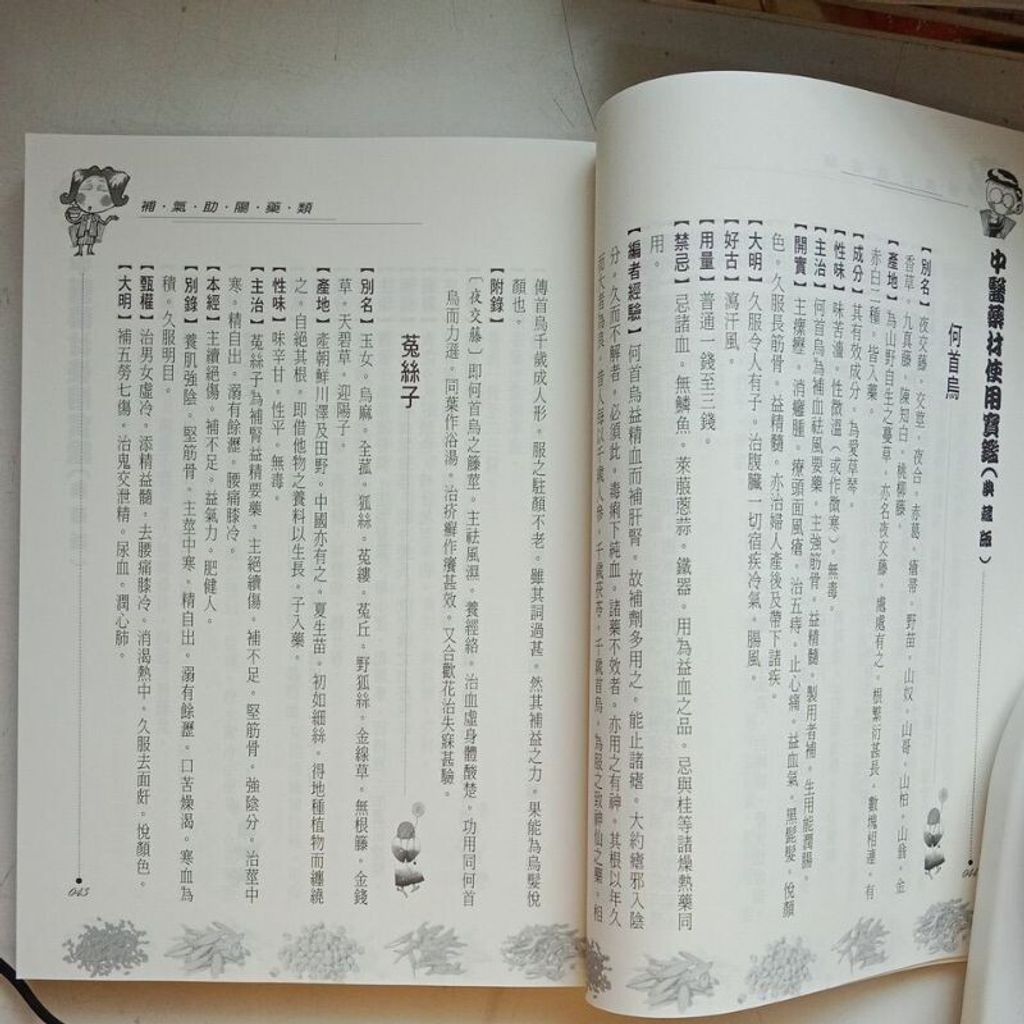 中醫藥材使用寶鑑(典藏版)
何首烏
【別名】夜交藤。交莖。夜合。赤葛。瘡帚。野苗。山奴。山哥。山柏。山翁。金
香草。九真藤。陳知白。桃柳藤。
【產地】為山野自生之蔓草。亦名夜交藤。處處有之。根繁衍甚長。數塊相連。有
赤白二種。皆入藥。
【成分】其有效成分。為愛草琴。
【性味】味苦濇。性微溫(或作微寒)。無毒。
【主治】何首烏為補血祛風要藥。主強筋骨。益精髓。製用者補。生用能潤腸。
【開寶】主瘰癧。消癰腫。療頭面風瘡。治五痔。止心痛。益血氣。黑髭髮。悅顏
色。久服長筋骨。益精髓。亦治婦人產後及帶下諸疾。
【大明】久服令人有子。治腹臟一切宿疾冷氣。腸風。
【好古】瀉汗風。
【用量】普通一錢至三錢。
【禁忌】忌諸血。無鱗魚。萊菔蔥蒜。鐵器。用為益血之品。忌與桂等諸燥熱藥同
用。
【編者經驗】何首烏益精血而補肝腎。故補劑多用之。能止諸瘧。大約瘧邪入陰
分。久而不解者。必須此。毒痢下純血。諸藥不效者。亦用之有神。其根以年久
千歲茯苓。千歲首烏。為服之致神仙之藥。相
傳首烏千歲成人形。服之駐顏不老。雖其詞過甚。然其補益之力。果能為烏髮悅
顏也。
【附錄】
〔夜交藤〕即何首烏之籐莖。主祛風濕。養經絡。治血虛身體酸楚。功用同何首
烏而力遜。同葉作浴湯。治疥癬作癢甚效。又合歡花治失寐甚驗。
菟絲子
【別名】玉女。烏麻。全菰。狐絲。菟縷。菟丘。野狐絲。金線草。無根籐。金錢
草。天碧草。迎陽子。
【產地】產朝鮮川澤及田野。中國亦有之。夏生苗。初如細絲。得地種植物而纏繞
之。自絕其根。即借他物之養料以生長。子入藥。
【性味】味辛甘。性平。無毒。
【主治】菟絲子為補腎益精要藥。主絕續傷。補不足。堅筋骨。強陰分。治莖中
寒。精自出。溺有餘瀝。腰痛膝冷。
【本經】主續絕傷。補不足。益氣力。肥健人。
【別錄】養肌強陰。堅筋骨。主莖中寒。精自出。溺有餘瀝。口苦燥渴。寒血為
積。久服明目。
【甄權】治男女虛冷。添精益髓。去腰痛膝冷。消渴熱中。久服去面䵟。悅顏色。
【大明】補五勞七傷。治鬼交泄精。尿血。潤心肺。
補・氣・助・陽・藥・類
043